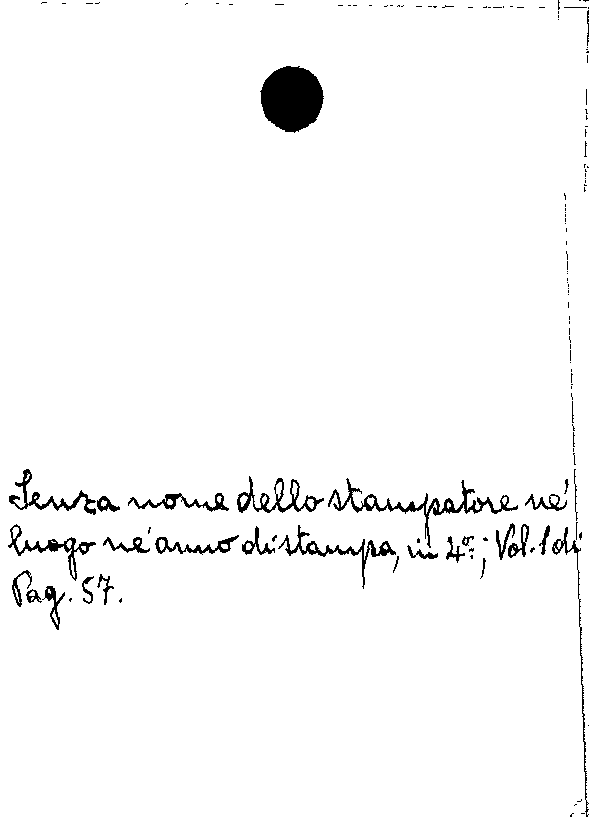 Senza nome dello stampatore nè
luogo nè anno di stampa, in 4º; Vol. 1 di
Pag. 57.